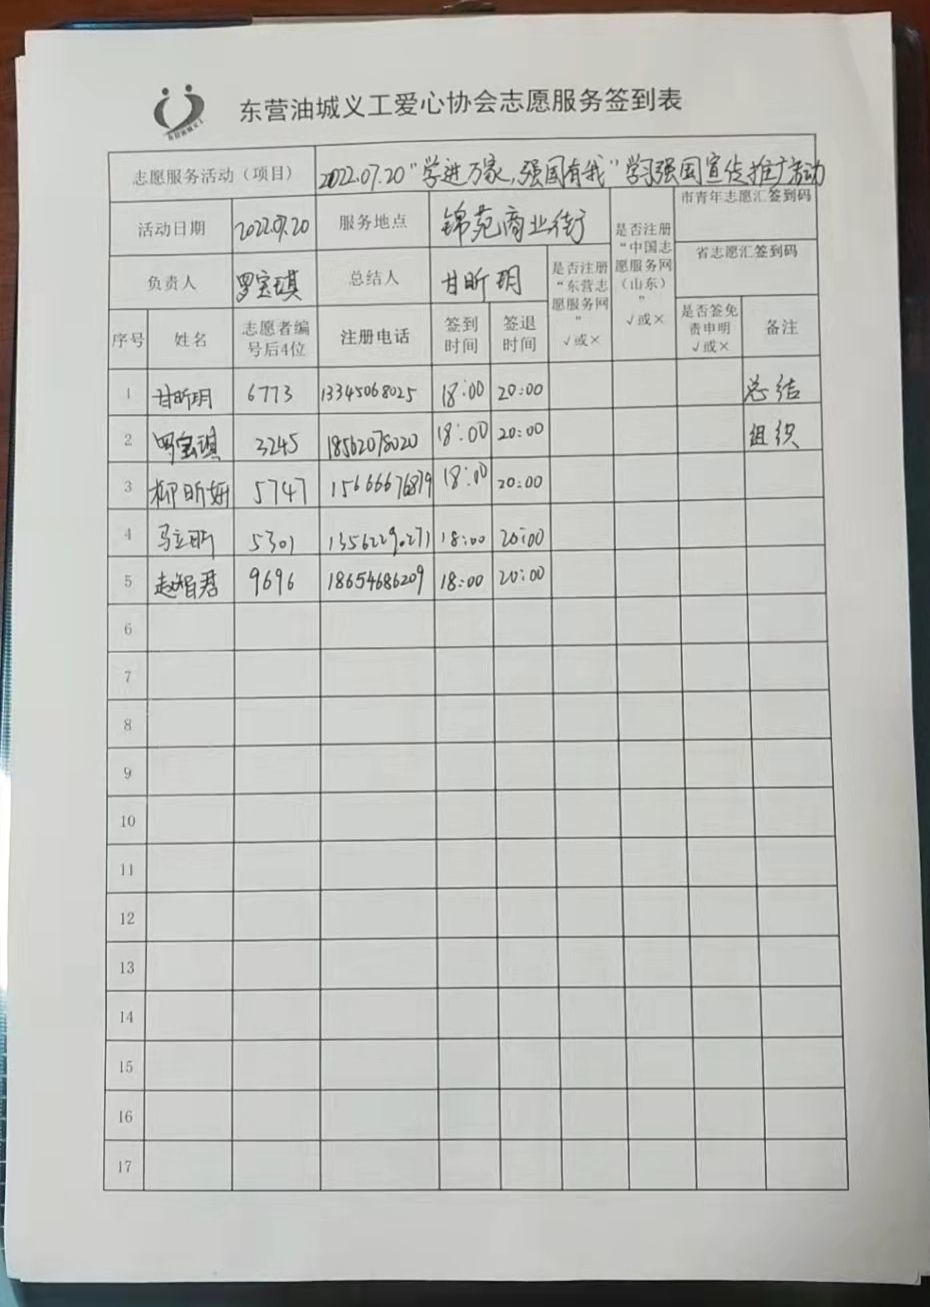 东营油城义工
东营油城义工爱心协会志愿服务签到表
志愿服务活动（项目） 2022.07.20“学进万家,强国有我”学习强国宣传推广活动
活动日期 2022.07.20 服务地点 锦苑商业街 是否注册“中国志愿服务网（山东）” √或× 市青年志愿汇签到码
省志愿汇签到码
负责人 罗宝琪 总结人 甘昕玥 是否注册“东营志愿服务网” √或×
序号 姓名 志愿者编号后4位 注册电话 签到时间 签退时间 是否签免责申明 √或× 备注
1 甘昕玥 6773 13345068025 18:00 20:00 总结
2 罗宝琪 3245 18562078020 18:00 20:00 组织
3 柳昕妍 5747 15666676879 18:00 20:00
4 5301 18:00 20:00
5 赵智君 9696 18654686209 18:00 20:00
6
7
8
9
10
11
12
13
14
15
16
17